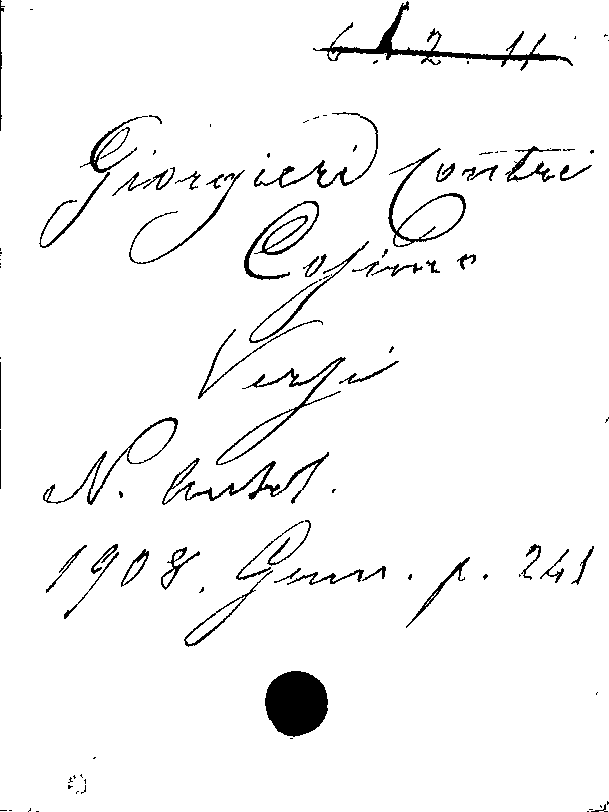 6.1.2.11
Giorgieri Contri
Cosimo
Versi
N. Antol.
1908. Genn. p. 241